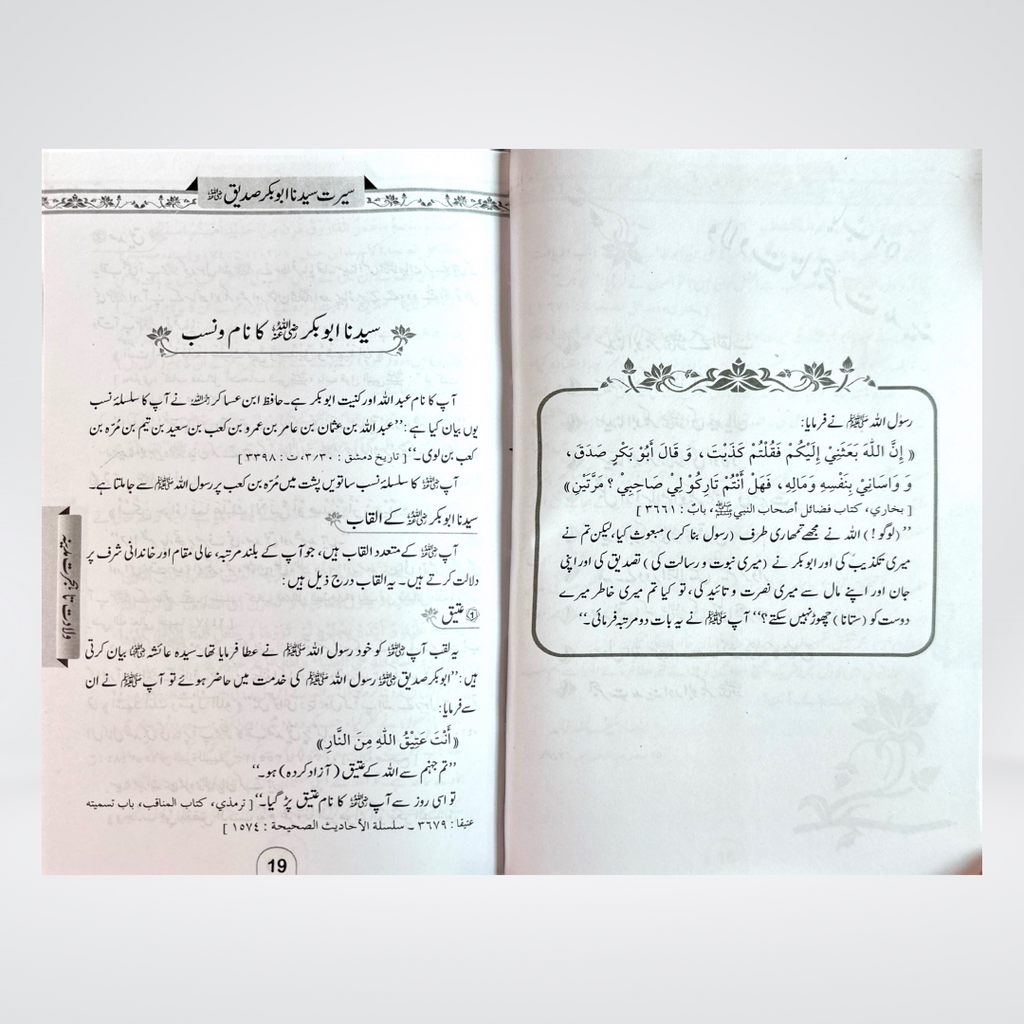 رسول اللہ ﷺ نے فرمایا:
« إِنَّ اللّٰهَ بَعَثَنِيْ إِلَيْكُمْ فَقُلْتُمْ كَذَبْتَ، وَ قَالَ أَبُوْ بَكْرٍ صَدَقَ،
وَ وَاسَانِيْ بِنَفْسِهِ وَمَالِهِ، فَهَلْ أَنْتُمْ تَارِكُوْ لِيْ صَاحِبِيْ؟ مَرَّتَيْنِ »
[ بخاري، كتاب فضائل أصحاب النبي ﷺ، باب : ٣٦٦١ ]
’’(لوگو!) اللہ نے مجھے تمھاری طرف (رسول بنا کر) مبعوث کیا، لیکن تم نے
میری تکذیب کی اور ابوبکر نے (میری نبوت و رسالت کی) تصدیق کی اور اپنی
جان اور اپنے مال سے میری نصرت و تائید کی، تو کیا تم میری خاطر میرے
دوست کو (ستانا) چھوڑ نہیں سکتے؟‘‘ آپ ﷺ نے یہ بات دو مرتبہ فرمائی۔‘‘
سیرت سیدنا ابوبکر صدیق رضی اللہ عنہ
سیدنا ابوبکر رضی اللہ عنہ کا نام و نسب
آپ کا نام عبد اللہ اور کنیت ابوبکر ہے۔ حافظ ابن عساکر رحمہ اللہ نے آپ کا سلسلۂ نسب
یوں بیان کیا ہے: ’’عبد اللہ بن عثمان بن عامر بن عمرو بن کعب بن سعید بن تیم بن مُرّہ بن
کعب بن لوی۔‘‘ [ تاریخ دمشق : ٣/٣٠، ت : ٣٣٩٨ ]
آپ رضی اللہ عنہ کا سلسلہ نسب ساتویں پشت میں مُرّہ بن کعب پر رسول اللہ ﷺ سے جا ملتا ہے۔
سیدنا ابوبکر رضی اللہ عنہ کے القاب
آپ رضی اللہ عنہ کے متعدد القاب ہیں، جو آپ کے بلند مرتبہ، عالی مقام اور خاندانی شرف پر
دلالت کرتے ہیں۔ یہ القاب درج ذیل ہیں:
① عتیق
یہ لقب آپ رضی اللہ عنہ کو خود رسول اللہ ﷺ نے عطا فرمایا تھا۔ سیدہ عائشہ رضی اللہ عنہا بیان کرتی
ہیں: ’’ابوبکر صدیق رضی اللہ عنہ رسول اللہ ﷺ کی خدمت میں حاضر ہوئے تو آپ ﷺ نے ان
سے فرمایا:
« أَنْتَ عَتِيْقُ اللّٰهِ مِنَ النَّارِ »
’’تم جہنم سے اللہ کے عتیق (آزاد کردہ) ہو۔‘‘
تو اسی روز سے آپ رضی اللہ عنہ کا نام عتیق پڑ گیا۔‘‘ [ ترمذي، كتاب المناقب، باب تسميته
عتيقا : ٣٦٧٩ ـ سلسلة الأحاديث الصحيحة : ١٥٧٤ ]
ولادت تا ہجرت مدینہ
19